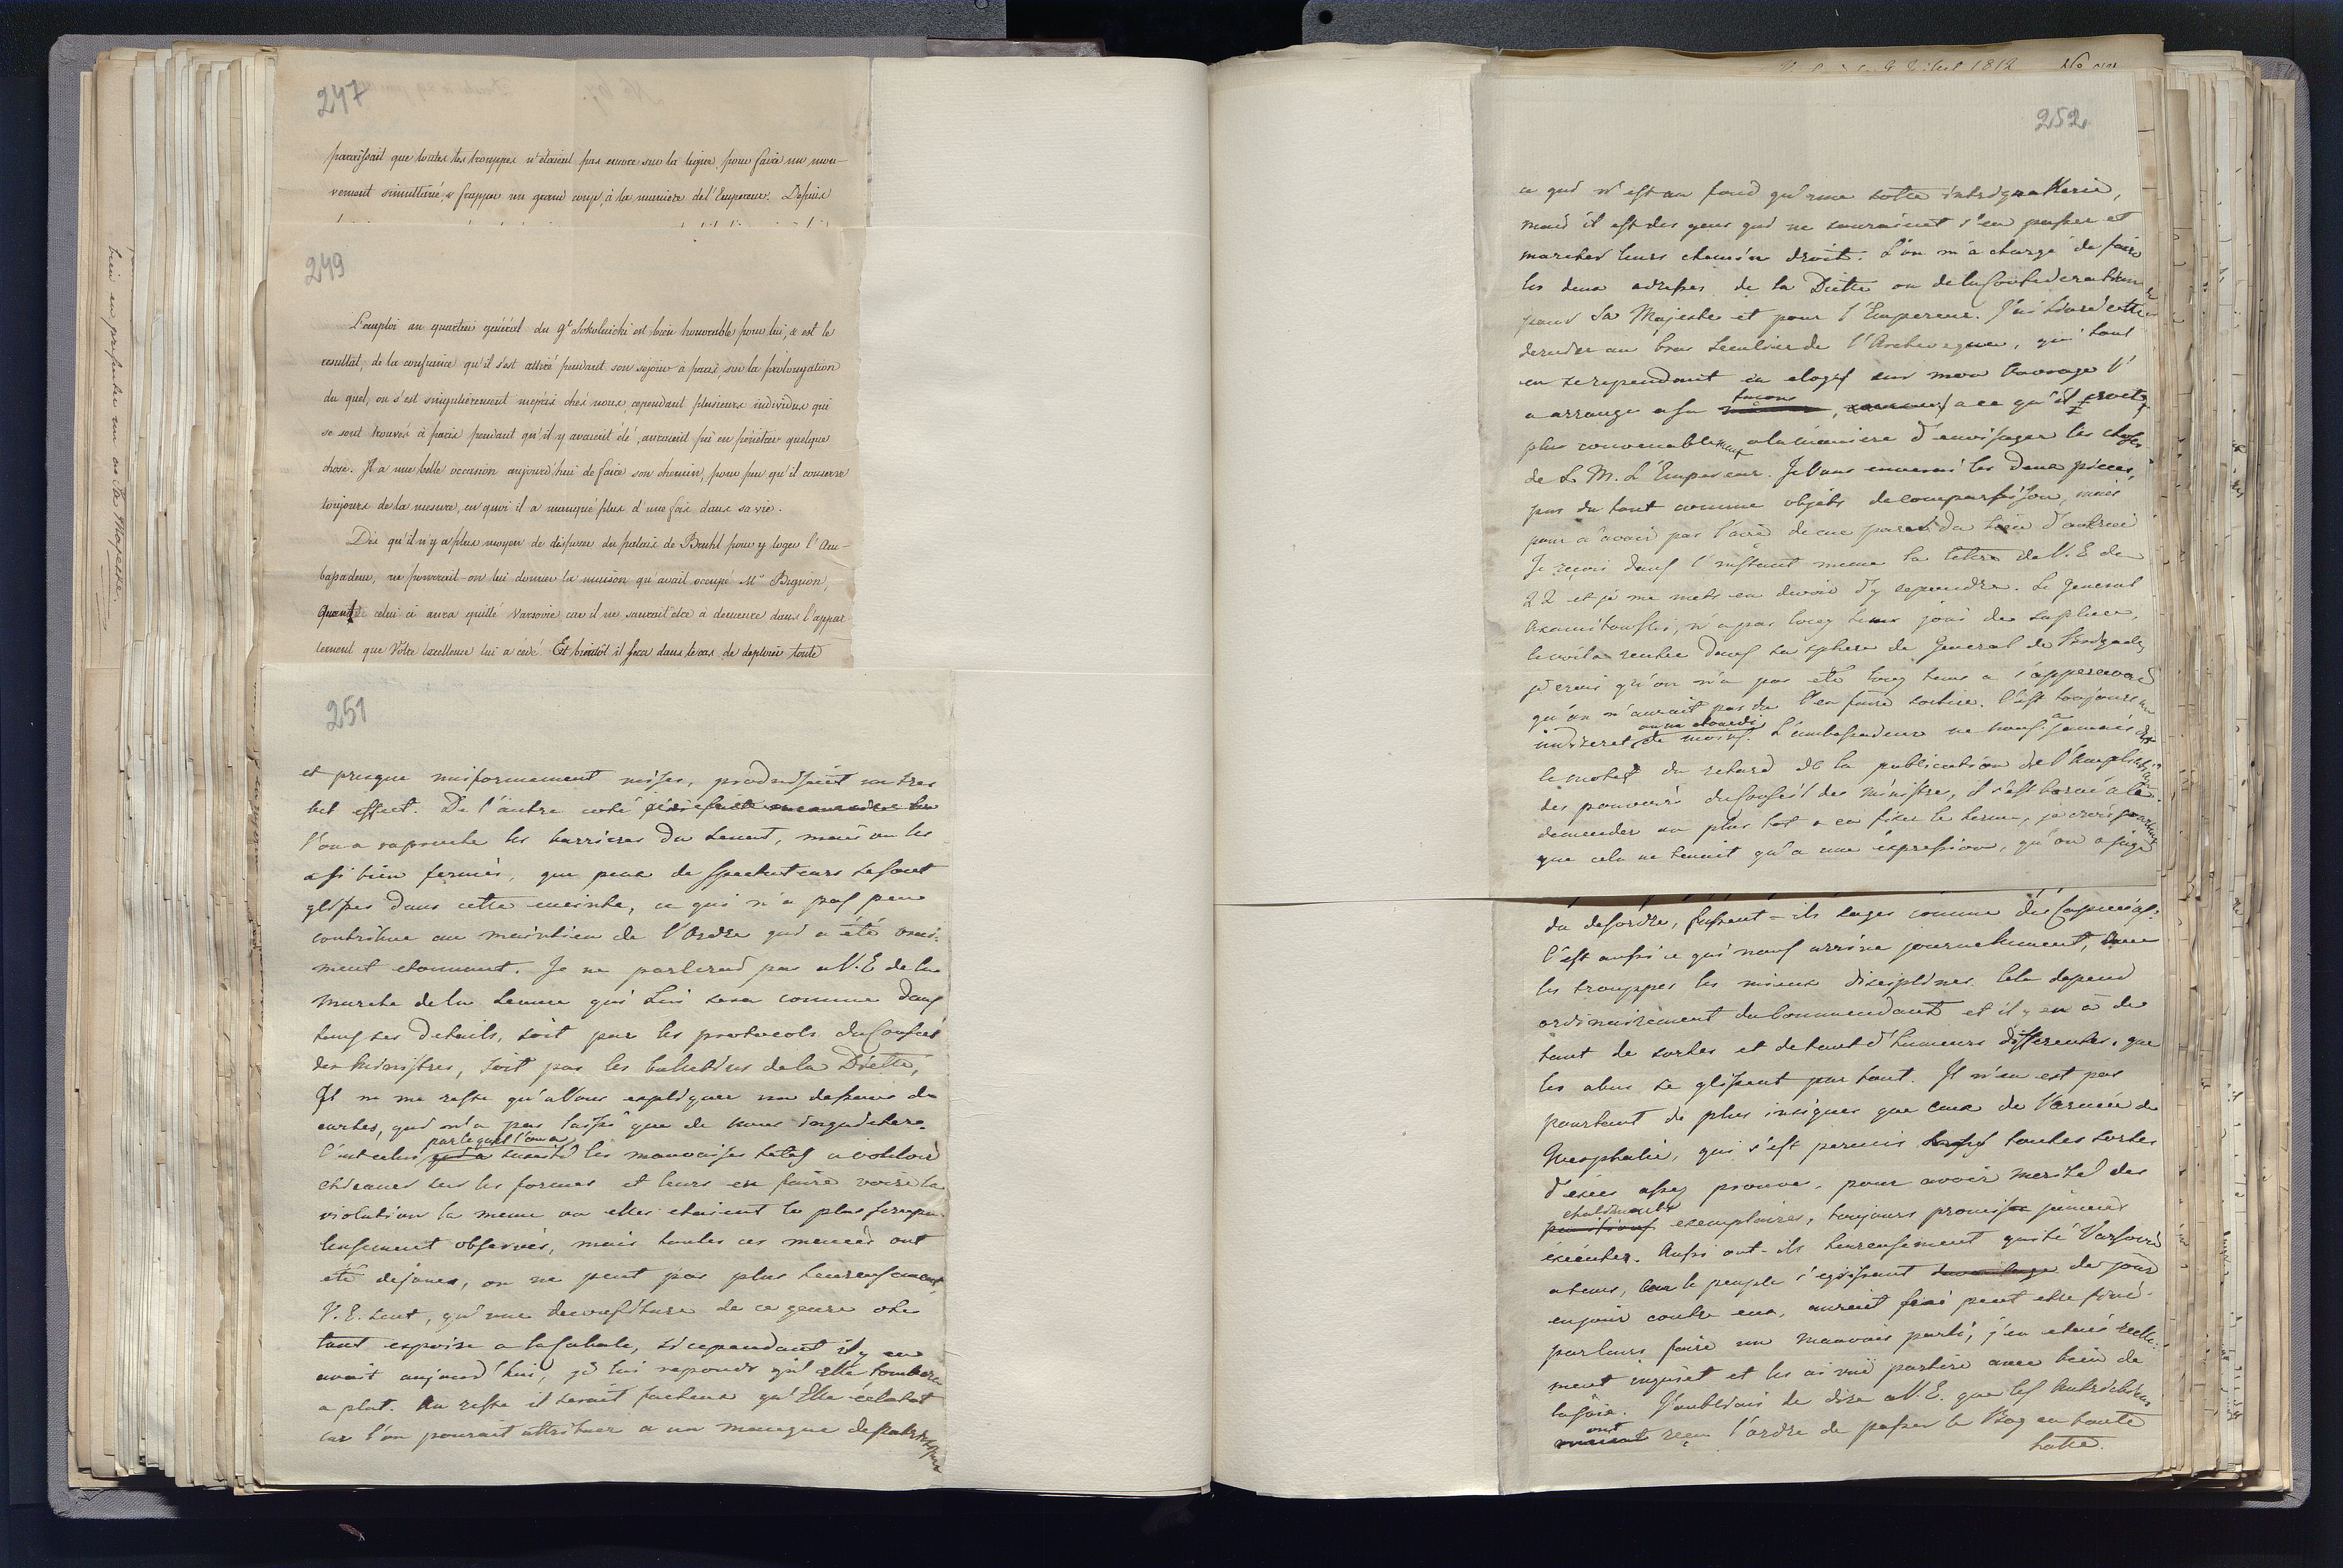 247
paraissait que toutes les trouppes n'étaient pas encore sur la ligne, pour faire un mou-
vement simultané, & frapper un grand coup, à la maniere de l'Empereur. Depuis
249
L'emploi au quartier général du gl Sokolnicki est bien honorable pour lui, & est le
resultat, de la confiance qu'il s'est attiré pendant son sejour à paris, sur la prolongation
du quel, on s'est singulièrement mepris chés nous, cependant plusieurs individus qui
se sont trouvés à paris pendant qu'il y avaient été, auraient pû en pénétrer quelque
chose. Il a une belle occasion aujourd'hui de faire son chemin, pour peu qu'il conserve
toujours de la mesure, en quoi il a manqué plus d'une fois dans sa vie.
Dès qu'il n'y a plus moyen de disposer du palais de Bruhl pour y loger l'Am-
bassadeur, ne pourrait-on lui donner la maison qu'avait occupé Mr Bignon,
quand celui ci aura quitté Varsovie car il ne saurait être à demeure dans l'appar
tement que Votre Excellence lui a cédé. Et bientôt il sera dans le cas de deploier toute
251
et presque uniformement mises, produisaient un tres
bel effect. De l'autre coté
l'on a raproché les barrieres du Senat, mais on les
a si bien fermés, que peux de spectateurs se sont
glissés dans cette enceinte, ce qui n'a pas peu
contribué au maintien de l'Ordre qui a été vrai-
ment etonnant. Je ne parlerai pas a V. E. de la
marche de la Seance qui Lui sera connue dans
tous ses details, soit par les protocols du Conseil
des Ministres, soit par les bulletins de la Diette,
Il ne me reste qu'a Vous expliquer un dessous de
cartes, qui n'a pas laissé que de nous inquieter.
C'est celui par lequel l'on a suscité les mauvaises tetes a vouloir
chicaner sur les formes et leurs en faire voir la
violation la meme ou elles etaient le plus scrupu-
leusement observés, mais toutes ces menées ont
été dejoués, on ne peut pas plus heureusement,
V. E. sent, qu'une deconfiture de ce genre ote
tout espoire a la Cabale, si cependant il y en
avait aujourd'hui, je lui reponds qu'elle tombera
a plat. Au reste il serait facheux qu'Elle éclatat
car l'on pourait attribuer a un manque de patriotisme
252
ce qui n'est au fond qu'une sotte intriguakerie,
mais il est des gens qui ne sauraient s'en passer et
marcher leurs chemin droit. L'on m'a chargé de faire
les deux adresses de la Diette ou de la Confederation
pour Sa Majesté et pour l'Empereur. J'ai livré cette
derniere au bras seculier de l'Archeveque, qui tout
en se rependant en eloges sur mon Ouvrage l'
a arrangé a sa facons, a ce qu'il croit
plus convenablement a la maniere d'envisager les choses
de S. M. L'Empereur. Je Vous enverrai les deux pièces,
pas du tout comme objets de comparaison, mais
pour n'avoir pas l'air de me parer du bien d'autrui
Je reçois dans l'instant meme la lettre de V. E. du
22 et je me mets en devoir d'y repondre. Le General
Axamitowski, n'a pas long tems joui de sa place,
le voila rentré dans sa sphere de General de Brigade,
je crois qu'on n'a pas été long tems a s'appercevoir
qu'on n'aurait pas du l'en faire sortir. C'est toujours un
indiscret ou un etourdi de moins. L'ambassadeur ne nous a jamais dit
le motif du retard de la publication de l'Ampliation
des pouvoirs du Conseil des Ministres, il s'est borné a le
demander au plus tot a en fixer le terme, je crois pourtant
que cela ne tenait qu'a une expression, qu'on a jugé
du desordre, fussent-ils sages comme des Capucins.
C'est aussi ce qui nous arrive journellement, avec
les trouppes les mieux disciplinés. Cela depend
ordinairement du Commendant et il y en a de
tant de sortes et de tant d'humeurs differentes, que
les abus se glissent par tout. Il n'en est pas
pourtant de plus insignes que ceux de l'armée de
Westphalie, qui s'est permis toutes sortes
d'exces assez prouvé, pour avoir merité des
chatiments exemplaires, toujours promis jamais
executés. Aussi ont-ils heureusement quité Varsovie
a tems, car le peuple s'egrissant de jour
en jour contre eux, aurait peut etre fini
par leurs faire un mauvais parti, j'en etais reelle-
ment inquiet et les ai vu partire avec bien de
la joie. J'oubliais de dire a V. E. que les Autrichiens
ont reçu l'ordre de passer le Bog en toute
hatte.